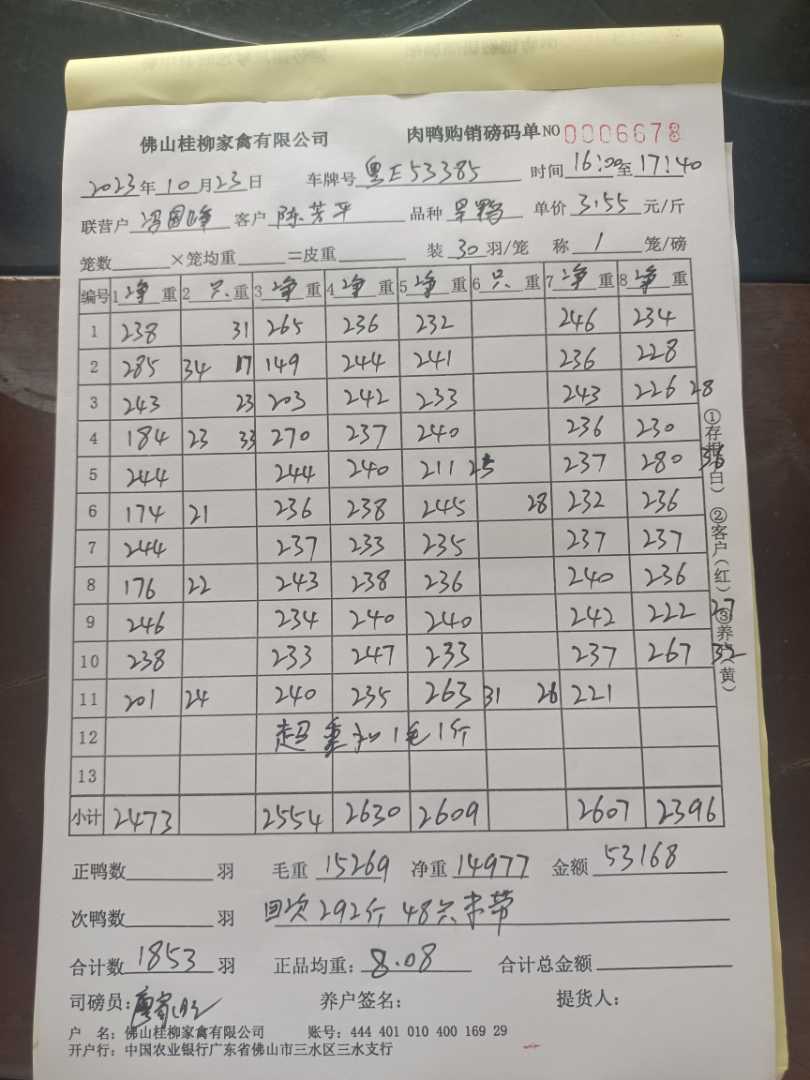 佛山桂柳家禽有限公司 肉鸭购销磅码单 NO 0006678
2023年10月23日 车牌号 粤E53385 时间 16:00至17:40
联营户 冯国峰 客户 陈芳平 品种 旱鸭 单价 3.55 元/斤
笼数 ×笼均重 =皮重 装 30 羽/笼 称 1 笼/磅
编号 1 净 重 2 只 重 3 净 重 4 净 重 5 净 重 6 只 重 7 净 重 8 净 重
1 238 31 265 236 232 246 234
2 285 34 17 149 244 241 236 228
3 243 23 203 242 233 243 226 28
4 184 23 33 270 237 240 236 230
5 244 244 240 211 25 237 280 36
6 174 21 236 238 245 28 232 236
7 244 237 233 235 237 237
8 176 22 243 238 236 240 236
9 246 234 240 240 242 222 27
10 238 233 247 233 237 267 32
11 201 24 240 235 263 31 26 221
12 超重扣1毛1斤
13
小计 2473 2554 2630 2609 2607 2396
正鸭数 羽 毛重 15269 净重 14977 金额 53168
次鸭数 羽 回次292斤 48只未带
合计数 1853 羽 正品均重: 8.08 合计总金额
司磅员: 养户签名: 提货人:
户 名: 佛山桂柳家禽有限公司 账号: 444 401 010 400 169 29
开户行: 中国农业银行广东省佛山市三水区三水支行
①存根(白) ②客户(红) ③养户(黄)